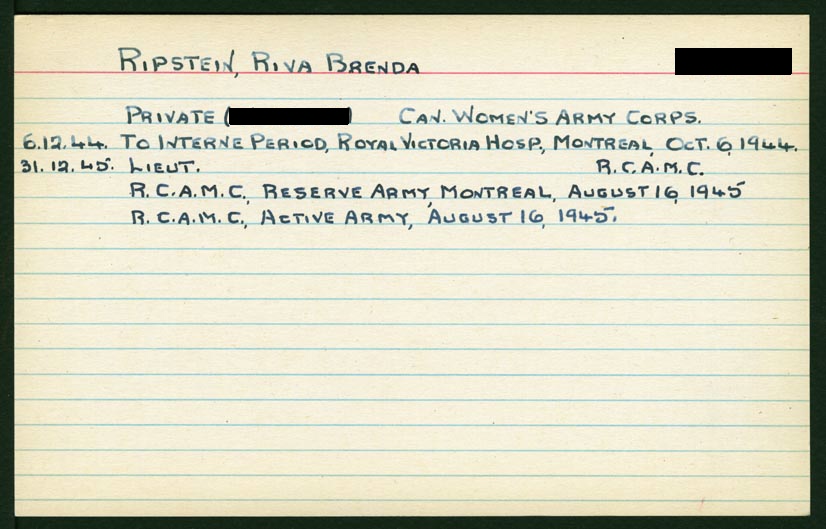 RIPSTEIN, RIVA BRENDA
PRIVATE ( ) CAN. WOMEN'S ARMY CORPS.
6.12.44. TO INTERNE PERIOD, ROYAL VICTORIA HOSP, MONTREAL, OCT. 6, 1944.
31.12.45. LIEUT. R.C.A.M.C.
R.C.A.M.C., RESERVE ARMY, MONTREAL, AUGUST 16, 1945
R.C.A.M.C., ACTIVE ARMY, AUGUST 16, 1945.